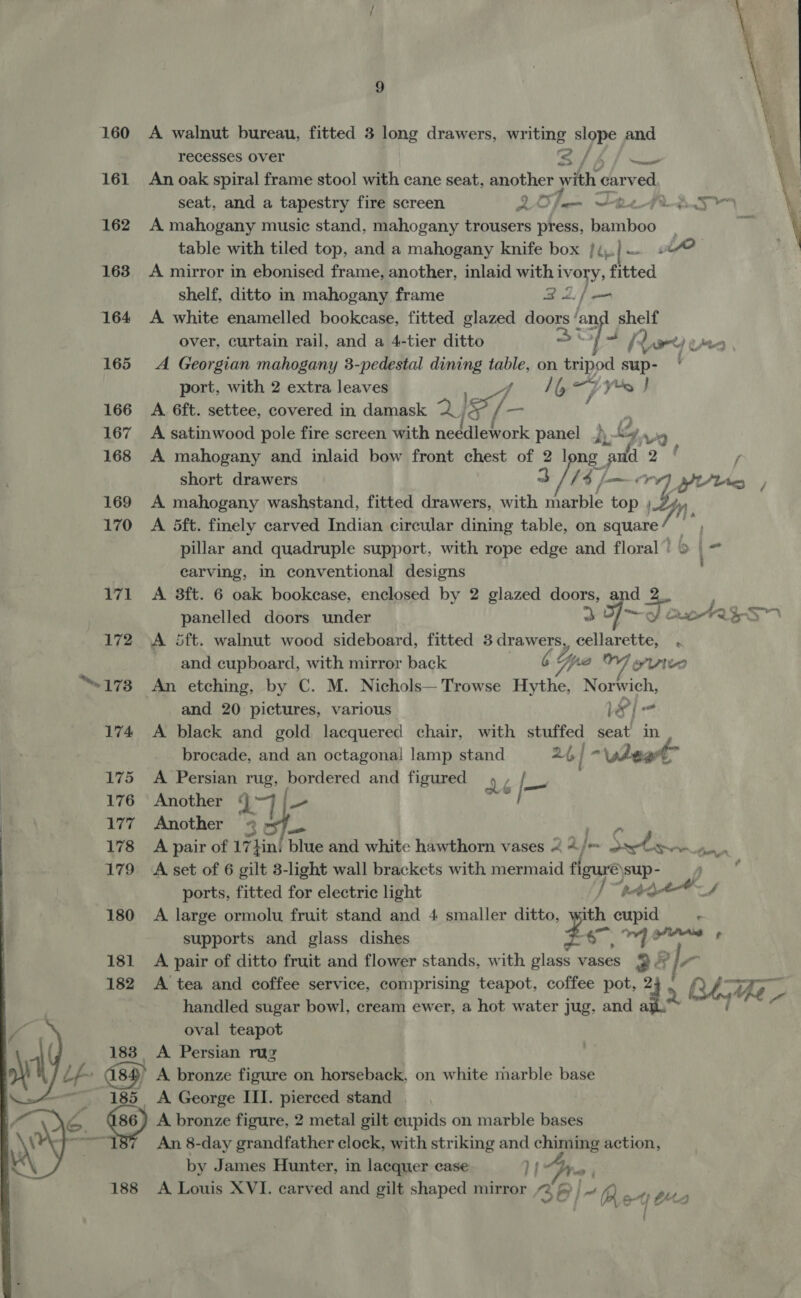 9
160 A walnut bureau, fitted 3 long drawers, writing slope and
recesses over
161 An oak spiral frame stool with cane seat, another with carved
seat, and a tapestry fire screen
162 A mahogany music stand, mahogany trousers press, bamboo
table with tiled top, and a mahogany knife box
163 A mirror in ebonised frame, another, inlaid with ivory, fitted
shelf, ditto in mahogany frame 32/—
164 A white enamelled bookcase, fitted glazed doors and shelf
over, curtain rail, and a 4-tier ditto
165 A Georgian mahogany 3-pedestal dining table, on tripod sup-
port, with 2 extra leaves
166 A 6ft. settee, covered in damask
167 A satinwood pole fire screen with needlework panel
168 A mahogany and inlaid bow front chest of 2 long and 2
short drawers
169 A mahogany washstand, fitted drawers, with marble top
170 A 5ft. finely carved Indian circular dining table, on square
pillar and quadruple support, with rope edge and floral
carving, in conventional designs
171 A 3ft. 6 oak bookcase, enclosed by 2 glazed doors, and 2
panelled doors under
172 A 5ft. walnut wood sideboard, fitted 3 drawers, cellarette,
and cupboard, with mirror back
173 An etching, by C. M. Nichols—Trowse Hythe, Norwich,
and 20 pictures, various 18/-
174 A black and gold lacquered chair, with stuffed seat in
brocade, and an octagonal lamp stand 26/-
175 A Persian rug, bordered and figured 26/—
176 Another
177 Another
178 A pair of 17½in. blue and white hawthorn vases 22/-
179 A set of 6 gilt 3-light wall brackets with mermaid figure sup-
ports, fitted for electric light
180 A large ormolu fruit stand and 4 smaller ditto, with cupid
supports and glass dishes
181 A pair of ditto fruit and flower stands, with glass vases
182 A tea and coffee service, comprising teapot, coffee pot, 2
handled sugar bowl, cream ewer, a hot water jug, and an
oval teapot
183 A Persian rug
184 A bronze figure on horseback, on white marble base
185 A George III. pierced stand
186 A bronze figure, 2 metal gilt cupids on marble bases
187 An 8-day grandfather clock, with striking and chiming action,
by James Hunter, in lacquer case
188 A Louis XVI. carved and gilt shaped mirror